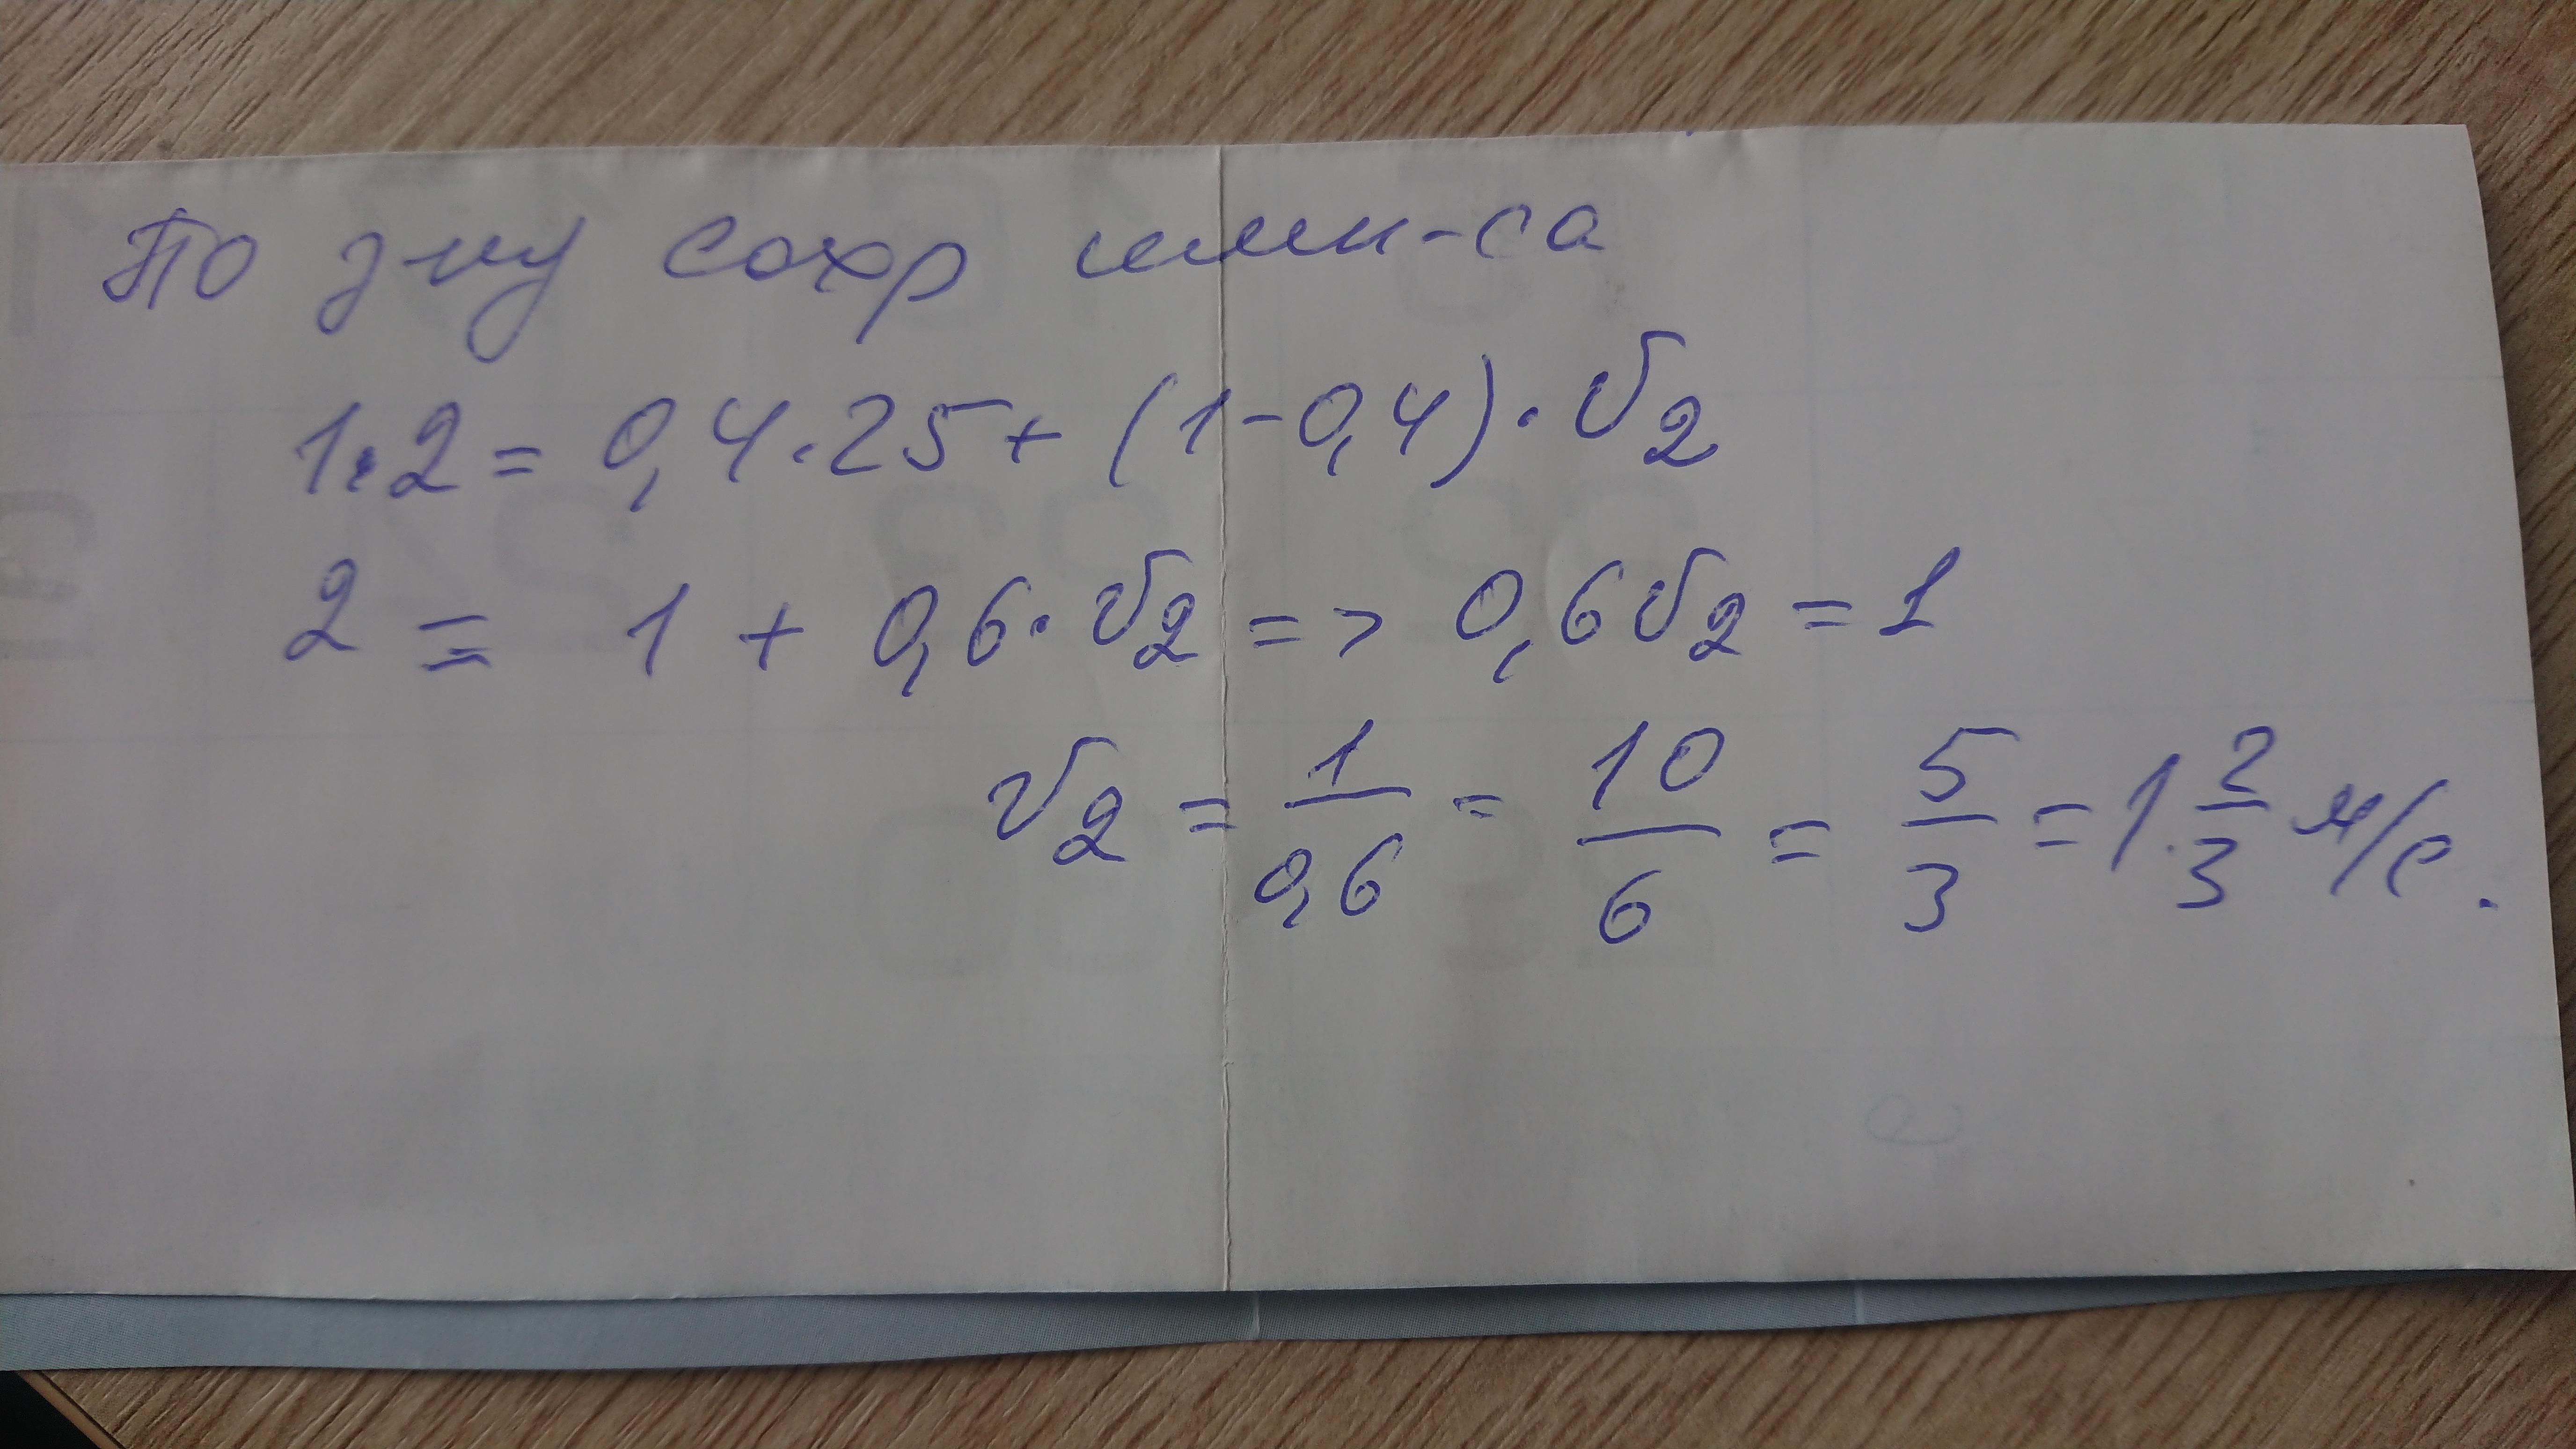 По з-ну сохр имп-са
1·2 = 0,4·25 + (1-0,4)·υ2
2 = 1 + 0,6·υ2 => 0,6υ2 = 1
υ2 = 1/0,6 = 10/6 = 5/3 = 1 2/3 м/с.